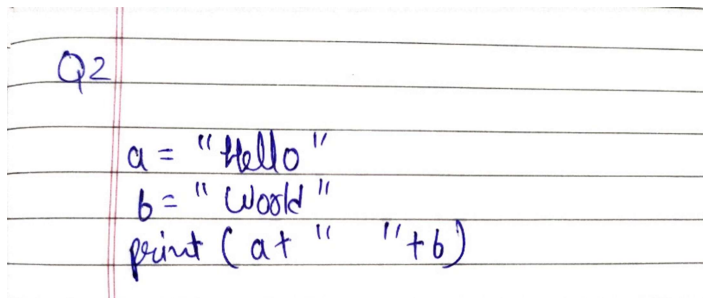 Q2
a = "Hello"
b = "World"
print (a + " " + b)